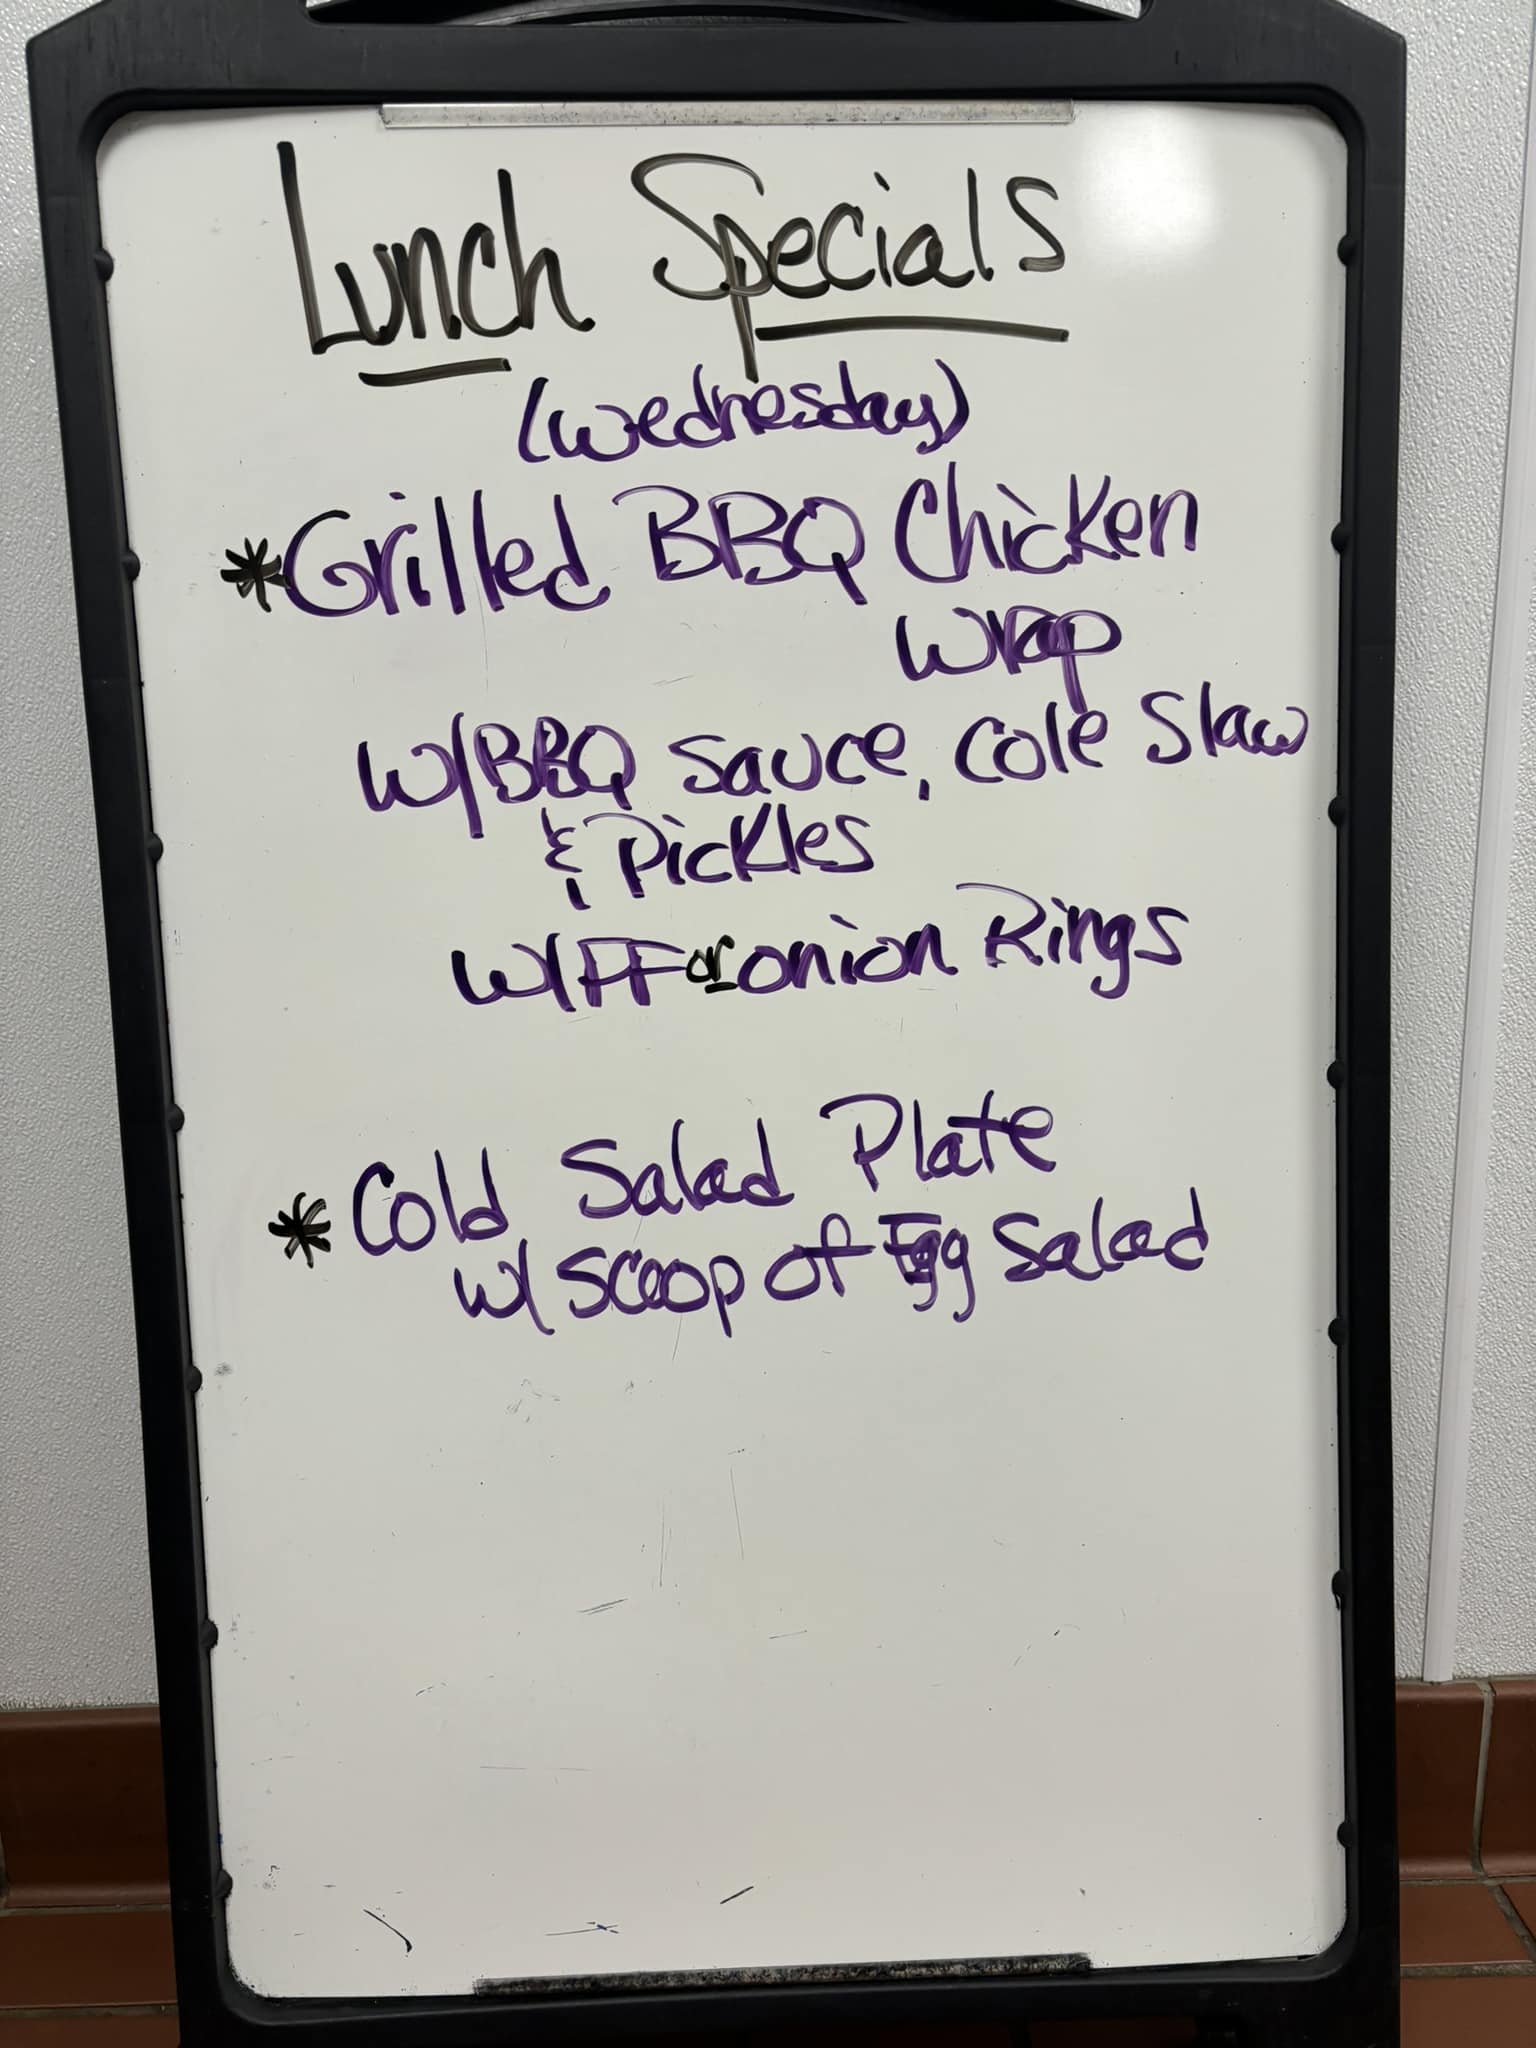 Lunch Specials
(Wednesday)
*Grilled BBQ Chicken
Wrap
W/BBQ Sauce, Cole Slaw
& Pickles
W/FF or onion Rings
*Cold Salad Plate
w/ scoop of Egg Salad